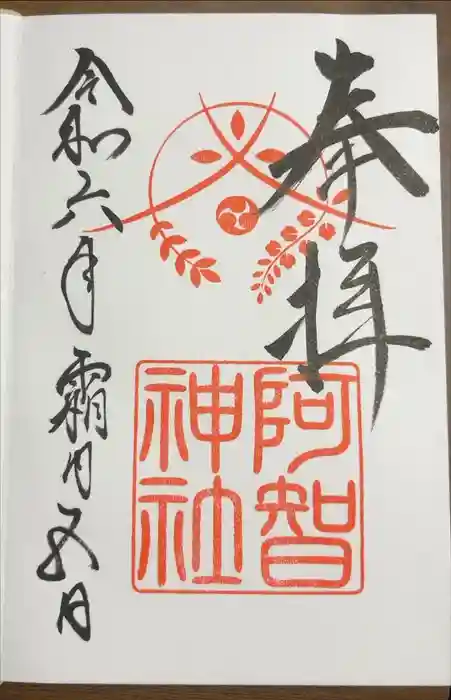 奉拝
阿智
神社
令和六年霜月五日